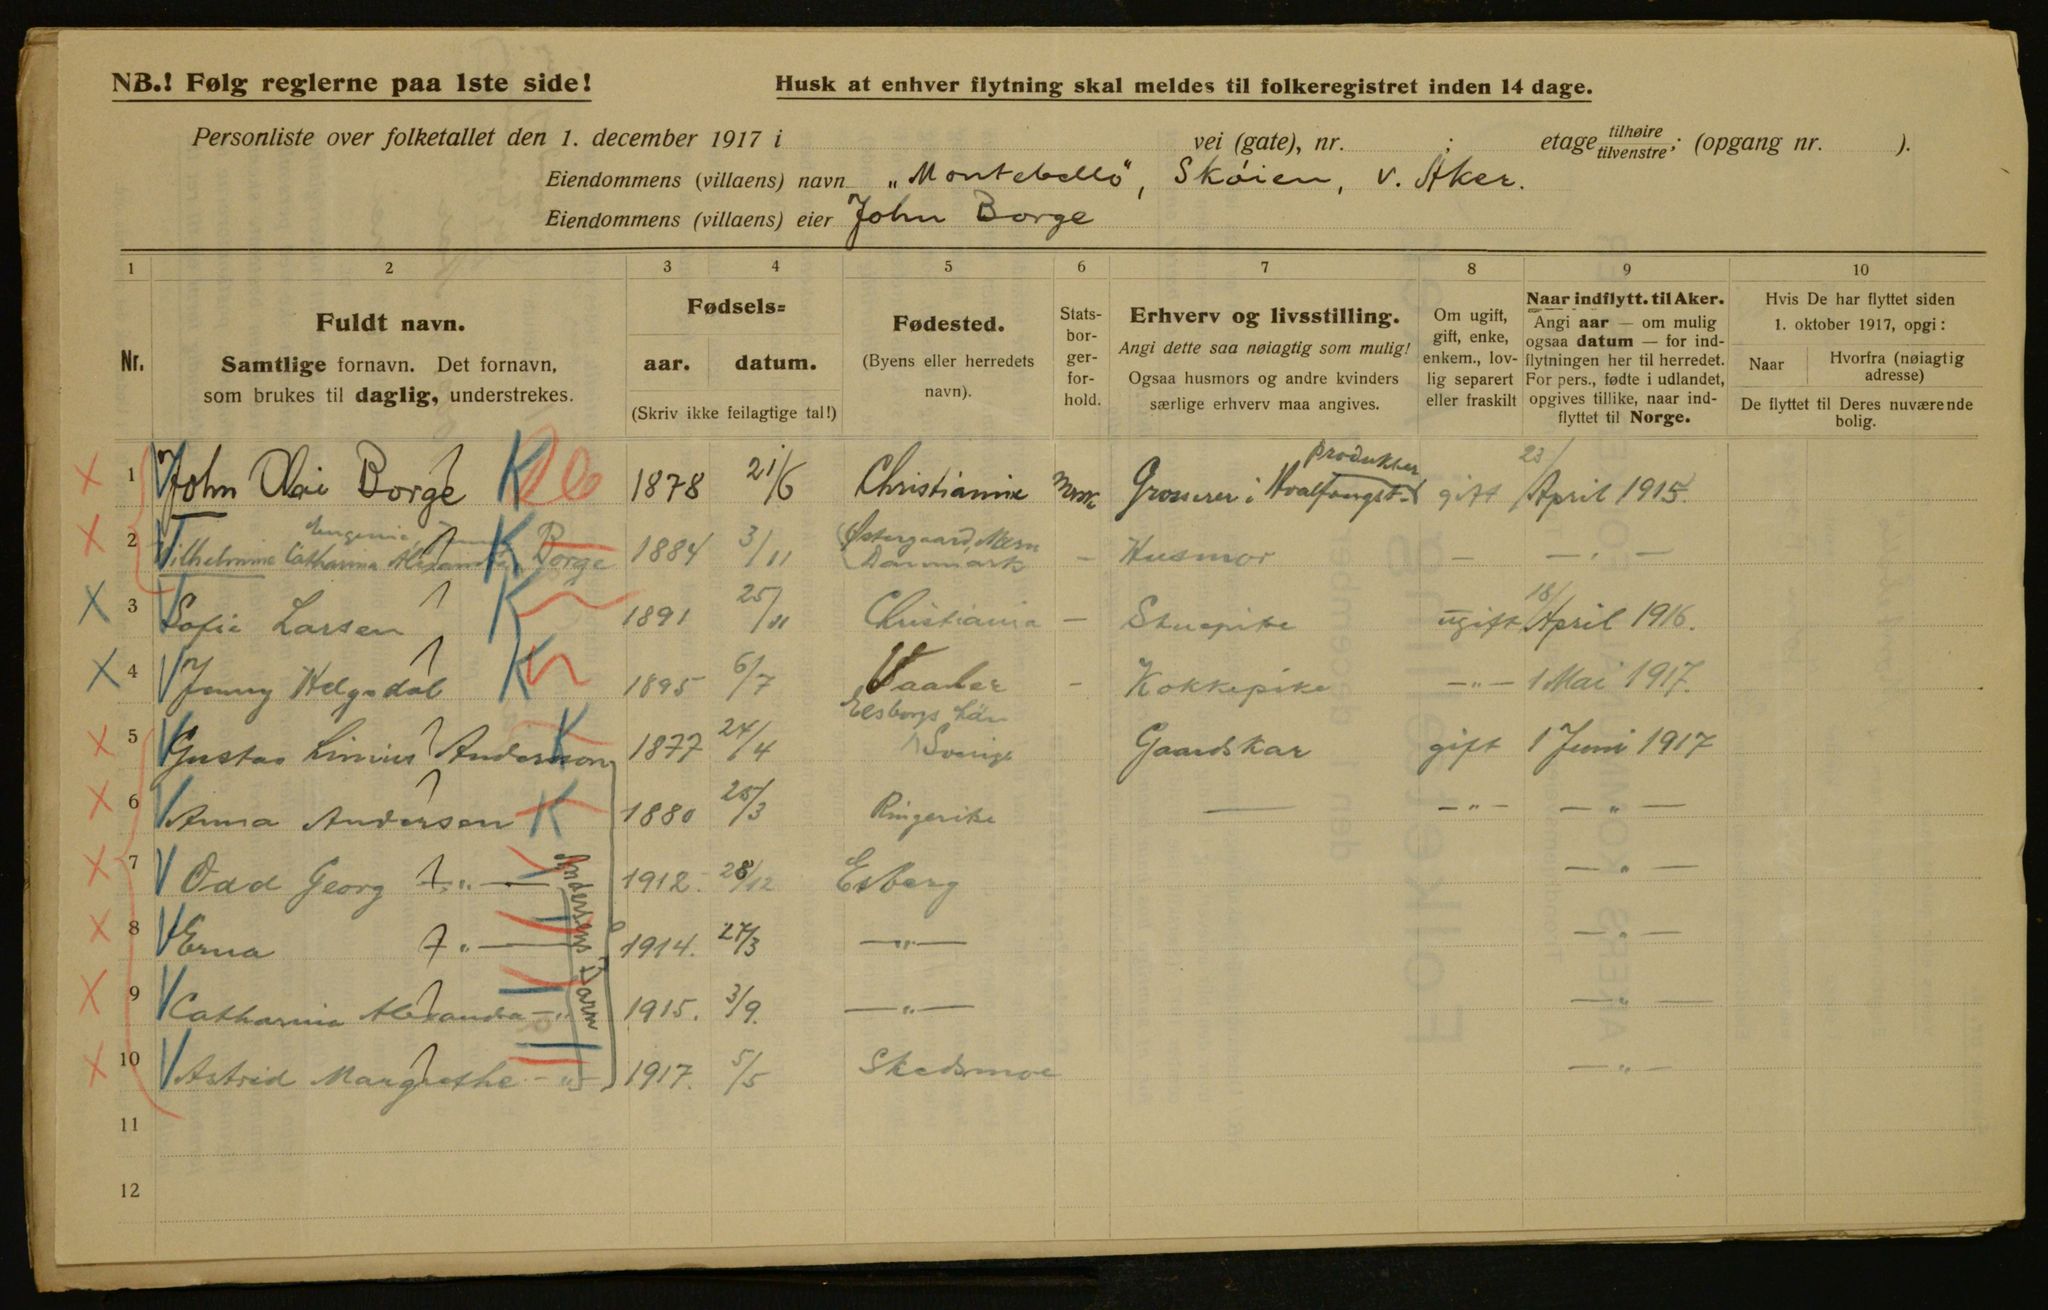 NB.! Følg reglerne paa 1ste side!
Husk at enhver flytning skal meldes til folkeregistret inden 14 dage.
Personliste over folketallet den 1. december 1917 i vei (gate), nr. ; etage tilhøire tilvenstre; (opgang nr. ).
Eiendommens (villaens) navn „Montebello", Skøien, v. Aker.
Eiendommens (villaens) eier John Borge
1 2 3 4 5 6 7 8 9 10
Nr.
Fuldt navn.
Samtlige fornavn. Det fornavn,
som brukes til daglig, understrekes.
Fødsels=
aar. datum.
(Skriv ikke feilagtige tal!)
Fødested.
(Byens eller herredets
navn).
Stats-
bor-
ger-
for-
hold.
Erhverv og livsstilling.
Angi dette saa nøiagtig som mulig!
Ogsaa husmors og andre kvinders
særlige erhverv maa angives.
Om ugift,
gift, enke,
enkem., lov-
lig separert
eller fraskilt
Naar indflytt. til Aker.
Angi aar — om mulig
ogsaa datum — for ind-
flytningen her til herredet.
For pers., fødte i udlandet,
opgives tillike, naar ind-
flyttet til Norge.
Hvis De har flyttet siden
1. oktober 1917, opgi:
Naar Hvorfra (nøiagtig
adresse)
De flyttet til Deres nuværende
bolig.
1 John Borge K 1878 21/6 Christiania Norsk Grosserer i Hvalfangst- produkter gift 23/ April 1915.
2 Wilhelmine Catharina Alexandra Eugenia K Borge 1884 3/11 Østergaard, Mern Danmark – Husmor – – „ –
3 Sofie Larsen K 1891 25/11 Christiania – Stuepike ugift 18/ April 1916.
4 Jenny Helgedal K 1895 6/7 Vaaler – Kokkepike – „ – 1 Mai 1917.
5 Gustav Linius Andersson K 1877 24/4 Elsborgs Län Sverige Gaardskar gift 1 Juni 1917
6 Anna Andersen K 1880 25/3 Ringerike — – „ – – „ –
7 Odd Georg – „ – 1912. 28/12 Esberg – „ –
8 Erna – „ – 1914. 27/3 – „ – – „ –
9 Catharina Alexandra – „ – 1915. 3/9. – „ – – „ –
10 Astrid Margrethe – „ – 1917. 5/5 Skedsmoe – „ –
Andersens Barn
11
12